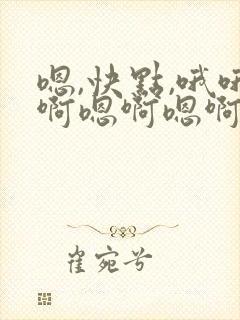 嗯,快點,哦哦
啊嗯啊嗯啊
崔宛兮